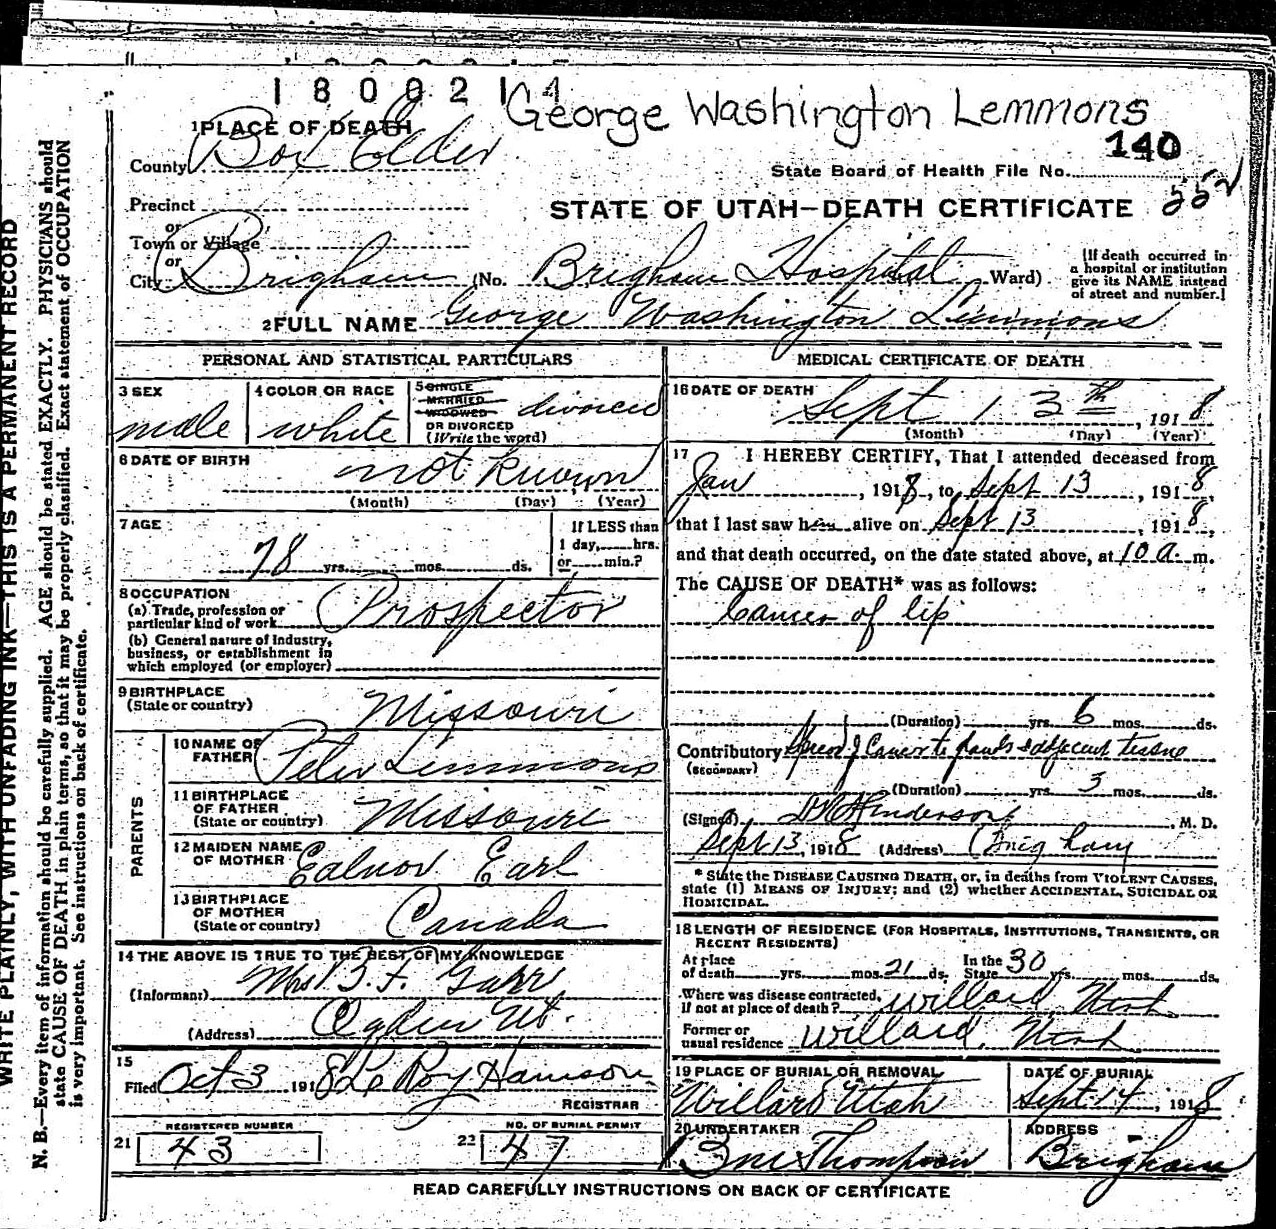 1800214
George Washington Lemmons
1 PLACE OF DEATH
140
County Box Elder
State Board of Health File No.
552
Precinct
STATE OF UTAH—DEATH CERTIFICATE
or
Town or Village
or
City Brigham (No. Brigham Hospital St. Ward)
[If death occurred in
a hospital or institution
give its NAME instead
of street and number.]
2 FULL NAME George Washington Limmons
PERSONAL AND STATISTICAL PARTICULARS
3 SEX
male
4 COLOR OR RACE
white
5 SINGLE
MARRIED
WIDOWED
OR DIVORCED
(Write the word)
divorced
6 DATE OF BIRTH
not known
(Month) (Day) (Year)
7 AGE
78 yrs. mos. ds.
If LESS than
1 day, hrs.
or min.?
8 OCCUPATION
(a) Trade, profession or
particular kind of work Prospector
(b) General nature of industry,
business, or establishment in
which employed (or employer)
9 BIRTHPLACE
(State or country) Missouri
PARENTS
10 NAME OF
FATHER Peter Limmons
11 BIRTHPLACE
OF FATHER
(State or country) Missouri
12 MAIDEN NAME
OF MOTHER Ealnor Earl
13 BIRTHPLACE
OF MOTHER
(State or country) Canada
14 THE ABOVE IS TRUE TO THE BEST OF MY KNOWLEDGE
(Informant) Mrs. B. F. Garr
(Address) Ogden Ut.
15
Filed Oct 3 1918 Le Roy Harrison
REGISTRAR
REGISTERED NUMBER
21 43
NO. OF BURIAL PERMIT
22 47
MEDICAL CERTIFICATE OF DEATH
16 DATE OF DEATH
Sept 13th, 1918
(Month) (Day) (Year)
17 I HEREBY CERTIFY, That I attended deceased from
Jan, 1918, to Sept 13, 1918,
that I last saw him alive on Sept 13, 1918,
and that death occurred, on the date stated above, at 10 a. m.
The CAUSE OF DEATH* was as follows:
Cancer of lip
(Duration) yrs. 6 mos. ds.
Contributory Spread of Cancer to glands & adjacent tissue
(SECONDARY)
(Duration) yrs. 3 mos. ds.
(Signed) Henderson, M. D.
Sept 13, 1918 (Address) Brigham
* State the DISEASE CAUSING DEATH, or, in deaths from VIOLENT CAUSES,
state (1) MEANS OF INJURY; and (2) whether ACCIDENTAL, SUICIDAL OR
HOMICIDAL.
18 LENGTH OF RESIDENCE (FOR HOSPITALS, INSTITUTIONS, TRANSIENTS, OR
RECENT RESIDENTS)
At place
of death yrs. mos. 21 ds. In the State 30 yrs. mos. ds.
Where was disease contracted,
if not at place of death? Willard Utah
Former or
usual residence Willard, Utah
19 PLACE OF BURIAL OR REMOVAL
Willard Utah
DATE OF BURIAL
Sept 14, 1918
20 UNDERTAKER
Thompson
ADDRESS
Brigham
READ CAREFULLY INSTRUCTIONS ON BACK OF CERTIFICATE
WRITE PLAINLY, WITH UNFADING INK—THIS IS A PERMANENT RECORD
N. B.—Every item of information should be carefully supplied. AGE should be stated EXACTLY. PHYSICIANS should
state CAUSE OF DEATH in plain terms, so that it may be properly classified. Exact statement of OCCUPATION
is very important. See instructions on back of certificate.